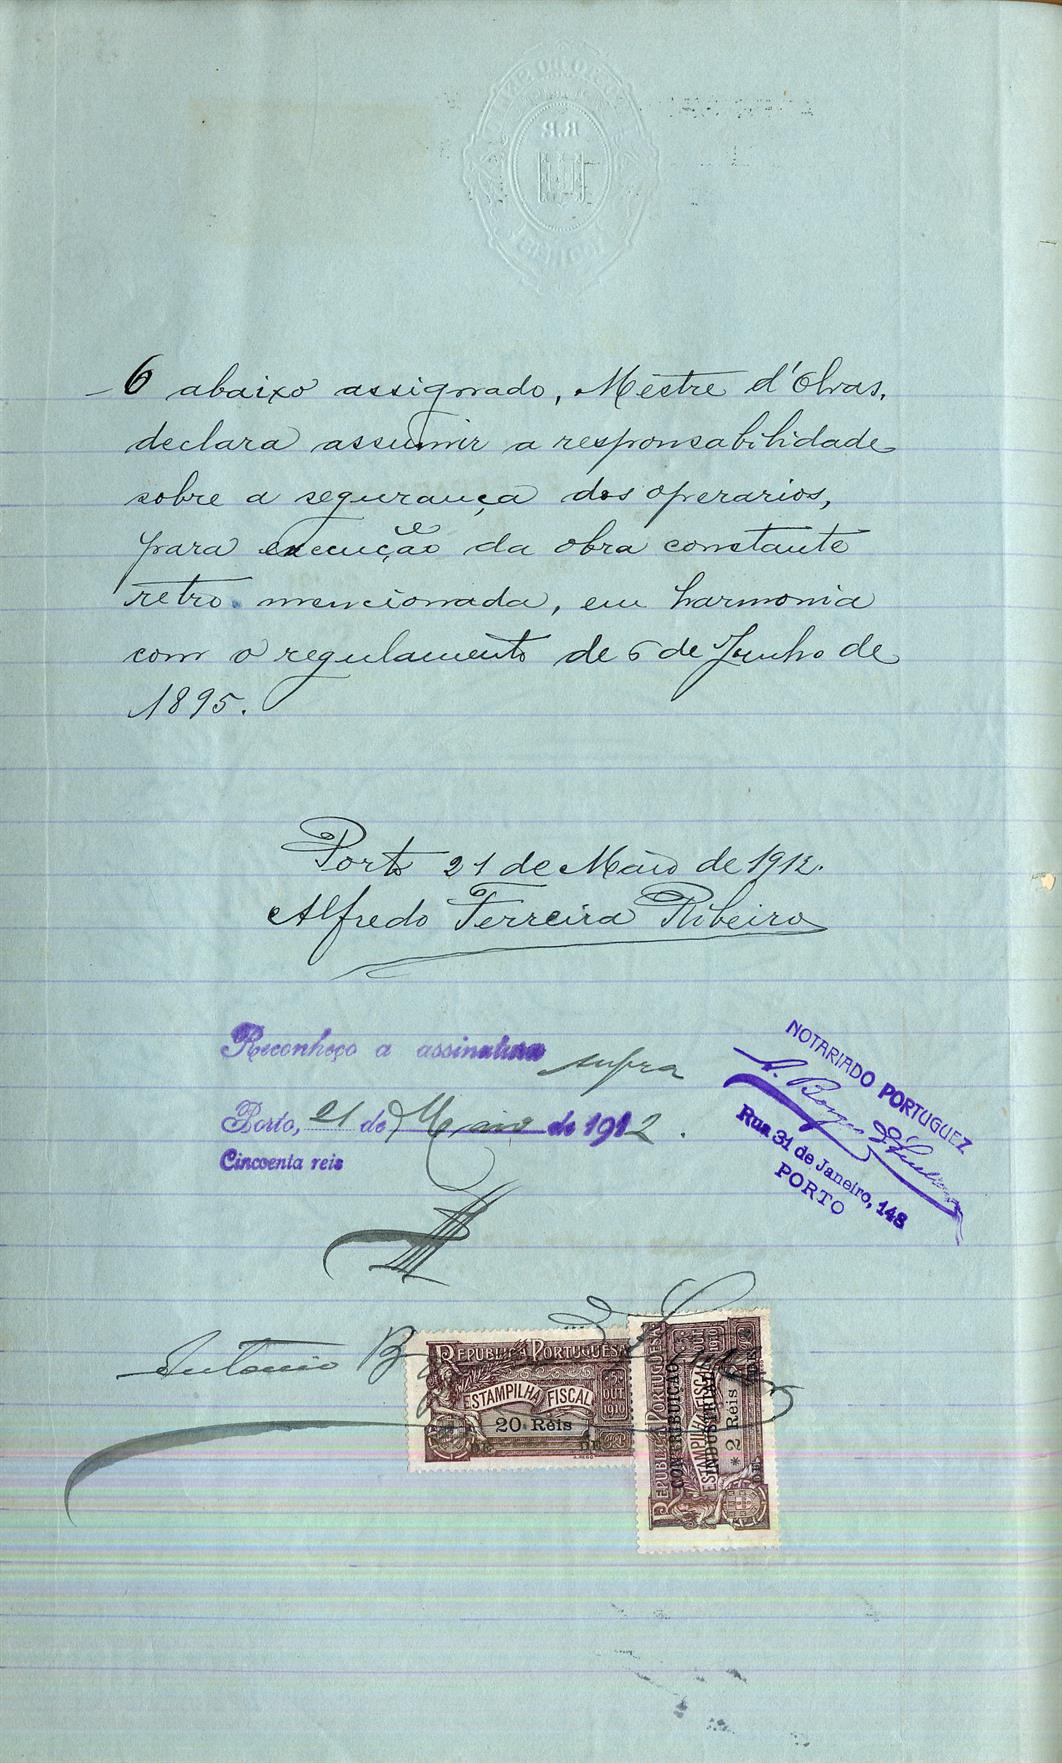 O abaixo assignado, Mestre d'Obras,
declara assumir a responsabilidade
sobre a segurança dos operarios,
para execução da obra constante
retro mencionada, em harmonia
com o regulamento de 6 de Junho de
1895.
Porto 21 de Maio de 1912.
Alfredo Ferreira Ribeiro
Reconheço a assinatura supra
Porto, 21 de Maio de 1912.
Cincoenta reis
NOTARIADO PORTUGUEZ
A. Borges
Rua 31 de Janeiro, 148
PORTO
Antonio
REPUBLICA PORTUGUESA
ESTAMPILHA FISCAL
5 OUT. 1910
20 Réis
REPUBLICA PORTUGUESA
ESTAMPILHA FISCAL
CONTRIBUIÇÃO
INDUSTRIAL
* 2 Réis
R.P.